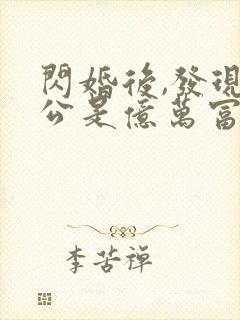 閃婚後,發現
公是億萬富
李苦禪